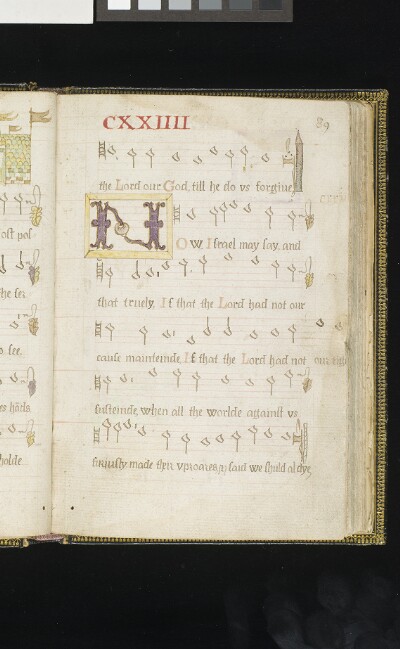 CXXIIII
89
the Lord our God, till he do vs forgiue
NOW Israel may say, and
that truely, If that the Lord had not our
cause mainteinde, If that the Lord had not our
susteinde, when all the worlde against vs
furiusly made their vproares,
said we shuld al dye
ost pos
the fer
o fee
holde